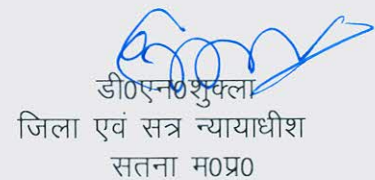 डी0एन0शुक्ला
जिला एवं सत्र न्यायाधीश
सतना म0प्र0